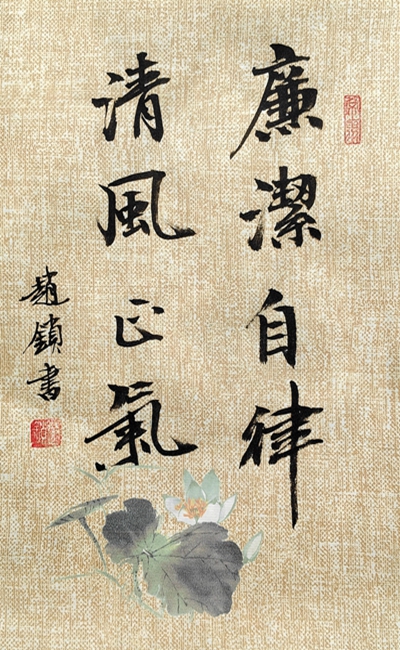 廉潔自律
清風正氣
趙鎖書